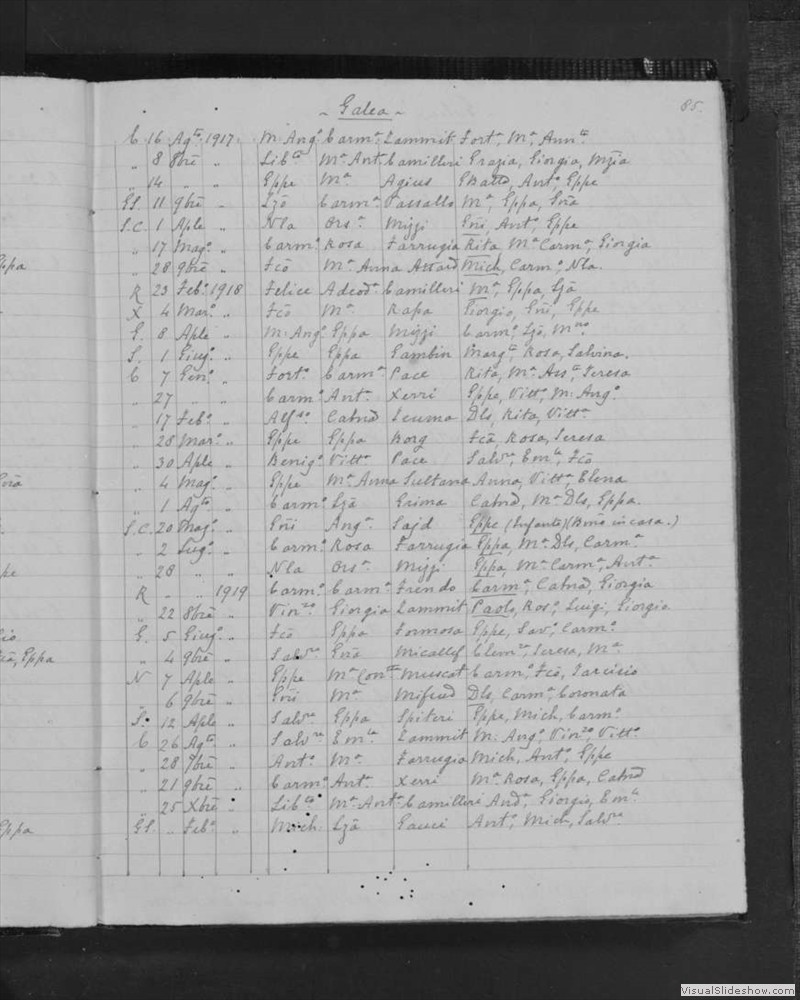 ~ Galea ~
85.
C 16 Agto 1917. M. Ango Carma Zammit Forta, Ma, Annta
" 8 8bre " Libto Ma Anta Camilleri Grazia, Giorgia,
" 14 " " Eppe Ma Agius Anto, Eppe
GS. 11 9bre " Lzo Carma Vassallo Ma, Eppa,
S.C. 1 Aple " Nla Orsa Mizzi Gni, Anto, Eppe
" 17 Mago " Carmo Rosa Farrugia Rita, Ma Carma, Giorgia
ppa " 28 9bre " Fco Ma Anna Attard Mich, Carmo, Nla.
R 23 Febo 1918 Felice Adeoda Camilleri Ma, Eppa, Lza
X 4 Maro " Fco Ma Rapa Giorgio, Gni, Eppe
G. 8 Aple " M. Ango Eppa Mizzi Carmo, Lza,
S. 1 Giugo " Eppe Eppa Gambin Marga, Rosa, Salvina.
C 7 Geno " Forto Carma Pace Rita, Ma Assta, Teresa
" 27 " " Carmo Anta Xerri Eppe, Vitta, M. Ango
" 17 Febo " Alfso Catnd Dls, Rita, Vitta
" 28 Maro " Eppe Eppa Borg Fca, Rosa, Teresa
" 30 Aple " Benigo Vitta Pace Salvra, Emla, Fco
" 4 Mago " Eppe Ma Anna Sultana Anna, Vitta, Elena
" 1 Agto " Carmo Lza Grima Catnd, Ma Dls, Eppa.
S.C. 20 Mago " Gni Anga Sajd Eppe (Infante) (Bmo in casa.)
" 2 Lugo " Carmo Rosa Farrugia Eppa, Ma Dls, Carma
pe " 28 " " Nla Orsa Mizzi Eppa, Ma Carma, Anta
R " " 1919 Carmo Carma Frendo Carma, Catnd, Giorgia
" 22 8bre " Vinzo Giorgia Zammit Paolo, Roso, Luigi, Giorgia
io G. 5 Giugo " Fco Eppa Formosa Eppe, Savo, Carmo
Eppa " 4 9bre " Salvre Gna Micallef Teresa, Ma
N 7 Aple " Eppe Ma Conta Muscat Carmo, Fco, Tarcisio
" 6 9bre " Gni Ma Mifsud Dls, Carma, Coronata
S. 12 Aple " Salvre Eppa Spiteri Eppe, Mich, Carmo
C 26 Agto " Salvre Emla Zammit M. Ango, Vinzo, Vitto
" 28 7bre " Anto Ma Farrugia Mich, Anto, Eppe
" 21 9bre " Carmo Anta Xerri Ma Rosa, Eppa, Catnd
" 25 Xbre " Libto Ma Anta Camilleri Anda, Giorgio, Emla
ppa GS. " Febo " Mich Lza Gauci Anto, Mich, Salvre
VisualSlideshow.com